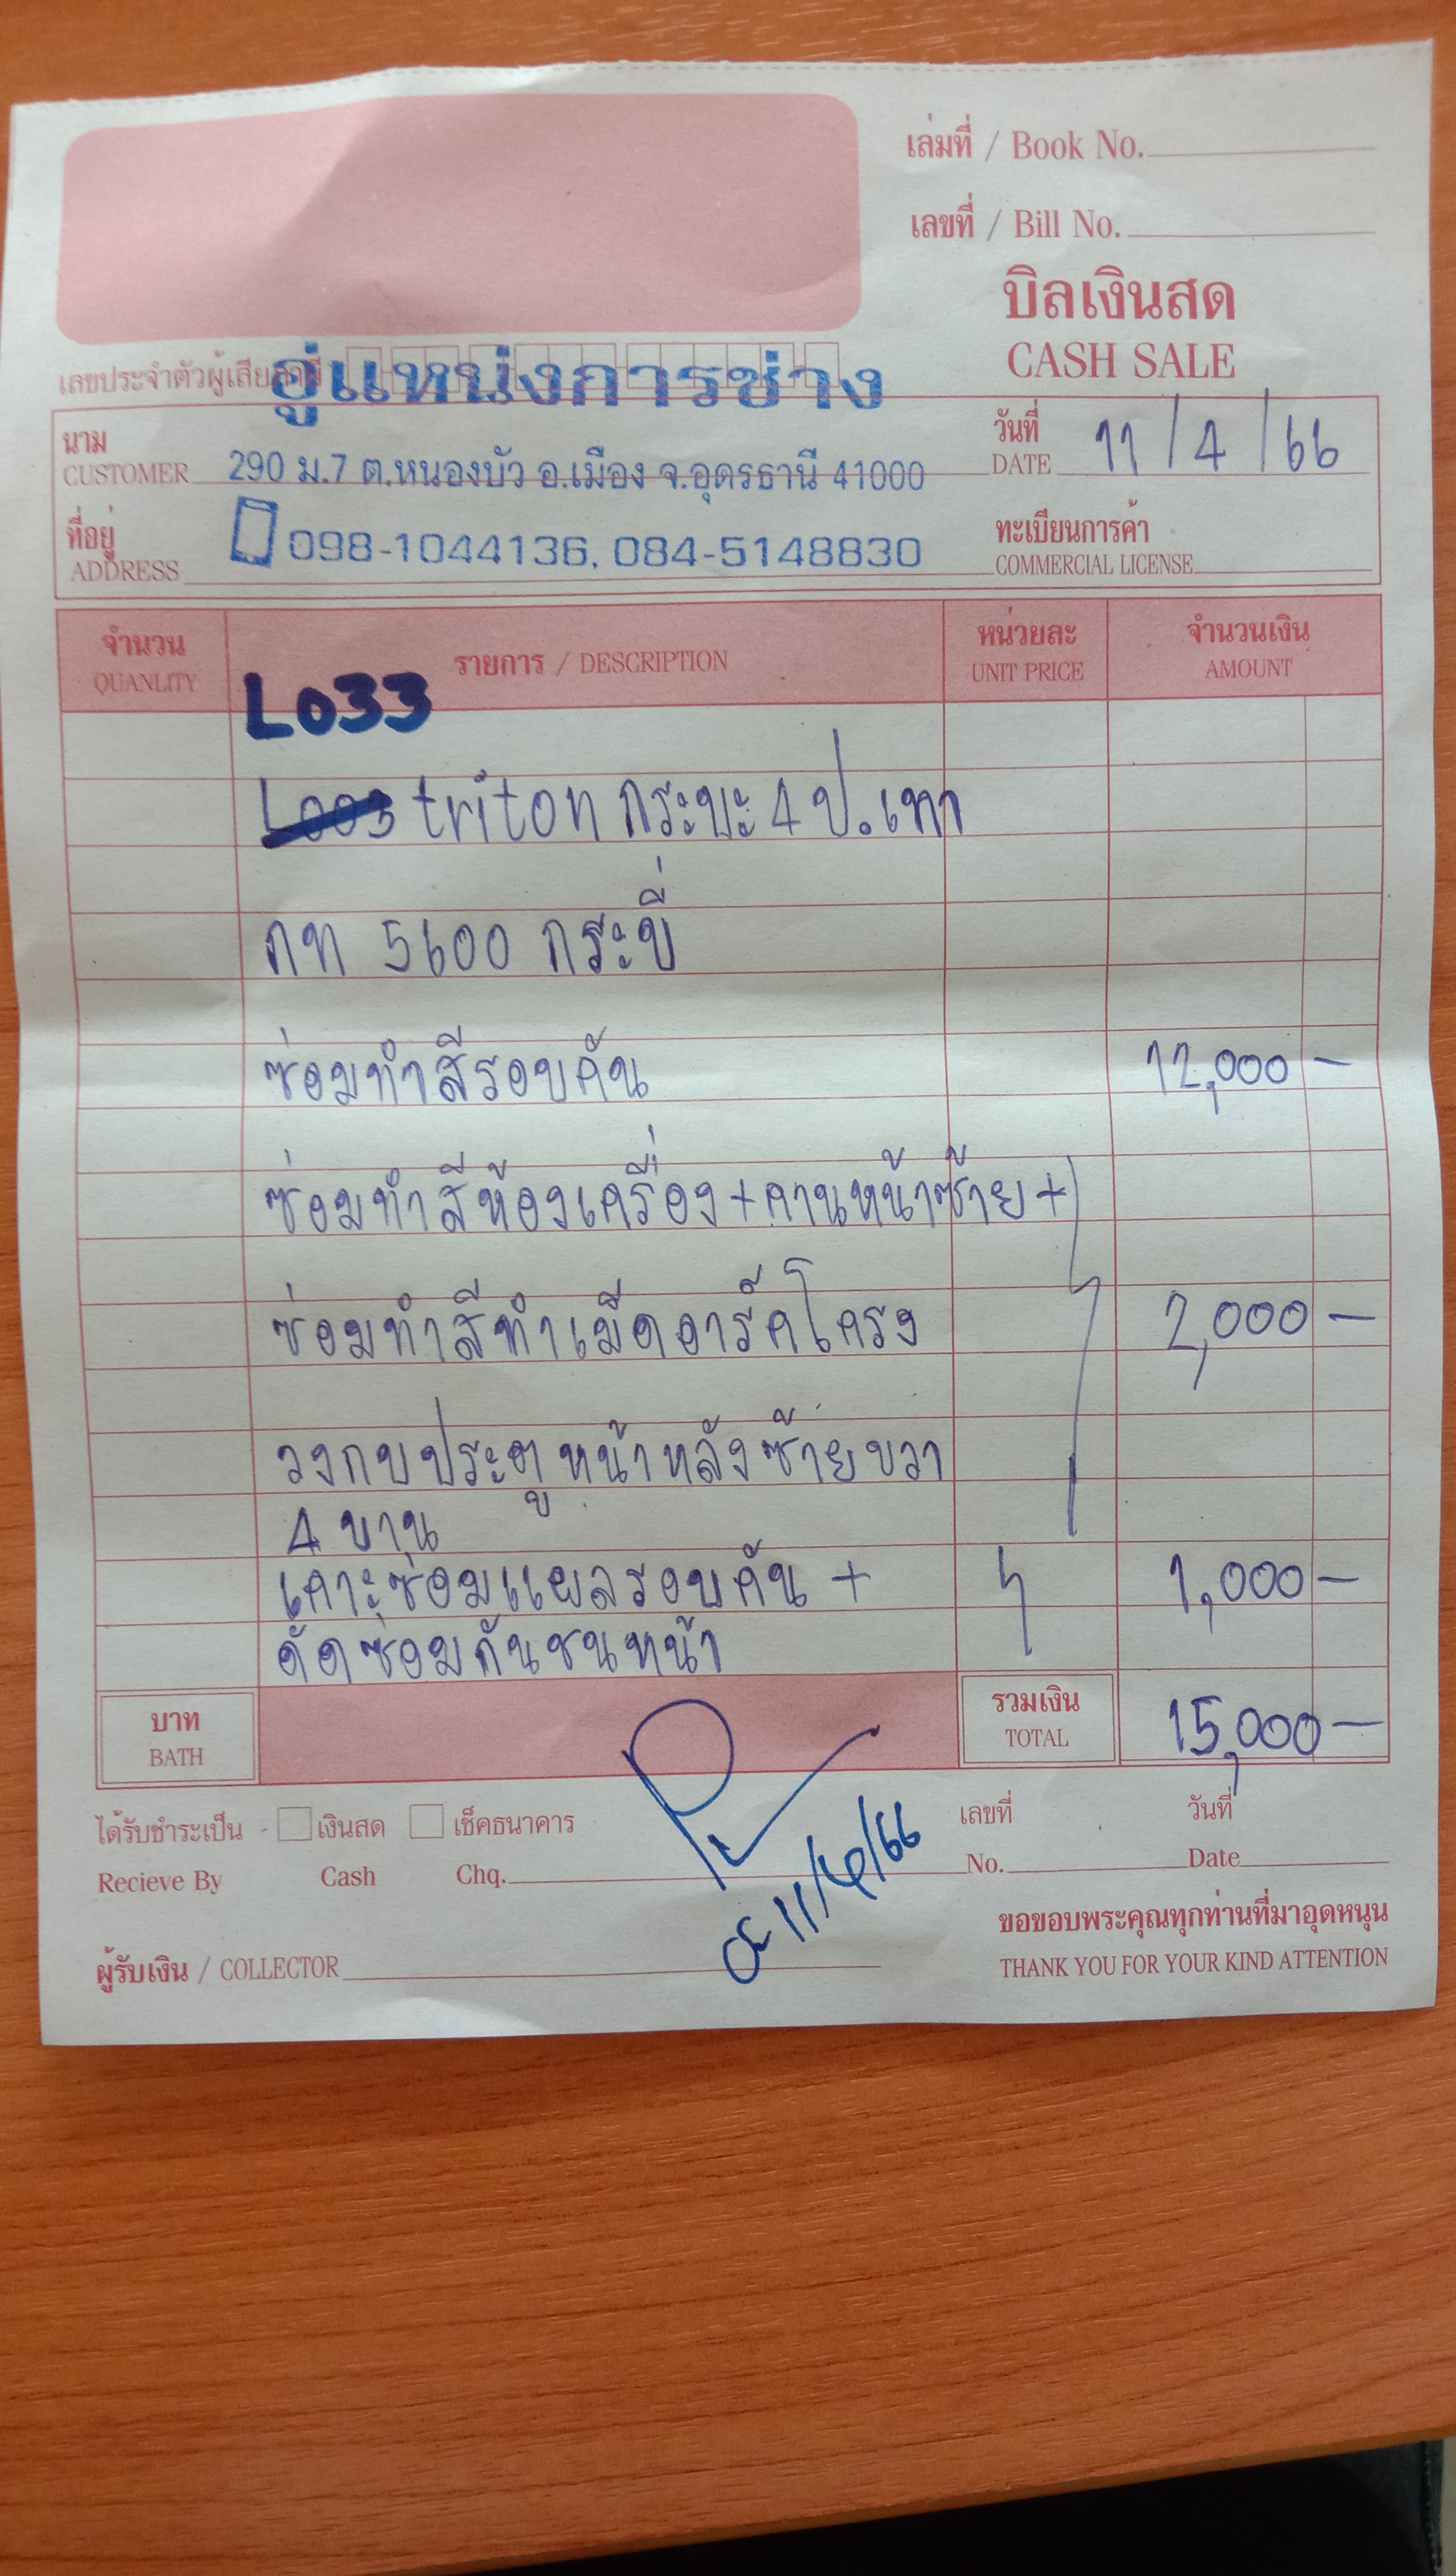 เล่มที่ / Book No.
เลขที่ / Bill No.
บิลเงินสด
CASH SALE
เลขประจำตัวผู้เสียภาษี
อู่แหน่งการช่าง
นาม
CUSTOMER
290 ม.7 ต.หนองบัว อ.เมือง จ.อุดรธานี 41000
วันที่
DATE
11/4/66
ที่อยู่
ADDRESS
098-1044136, 084-5148830
ทะเบียนการค้า
COMMERCIAL LICENSE
จำนวน
QUANLITY
รายการ / DESCRIPTION
หน่วยละ
UNIT PRICE
จำนวนเงิน
AMOUNT
L033
L003 triton กระบะ 4 ป. เทา
กท 5600 กระบี่
ซ่อมทำสีรอบคัน 12,000 -
ซ่อมทำสีห้องเครื่อง + คานหน้าซ้าย +
ซ่อมทำสีทำเม็ดอาร์คโครง 2,000 -
วงกบประตูหน้าหลังซ้ายขวา
4 บาน
เคาะซ่อมแผลรอบคัน + 1,000 -
ดัดซ่อมกันชนหน้า
บาท
BATH
รวมเงิน
TOTAL
15,000 -
ได้รับชำระเป็น เงินสด เช็คธนาคาร เลขที่ วันที่
Recieve By Cash Chq. No. Date
11/4/66
ขอขอบพระคุณทุกท่านที่มาอุดหนุน
ผู้รับเงิน / COLLECTOR
THANK YOU FOR YOUR KIND ATTENTION